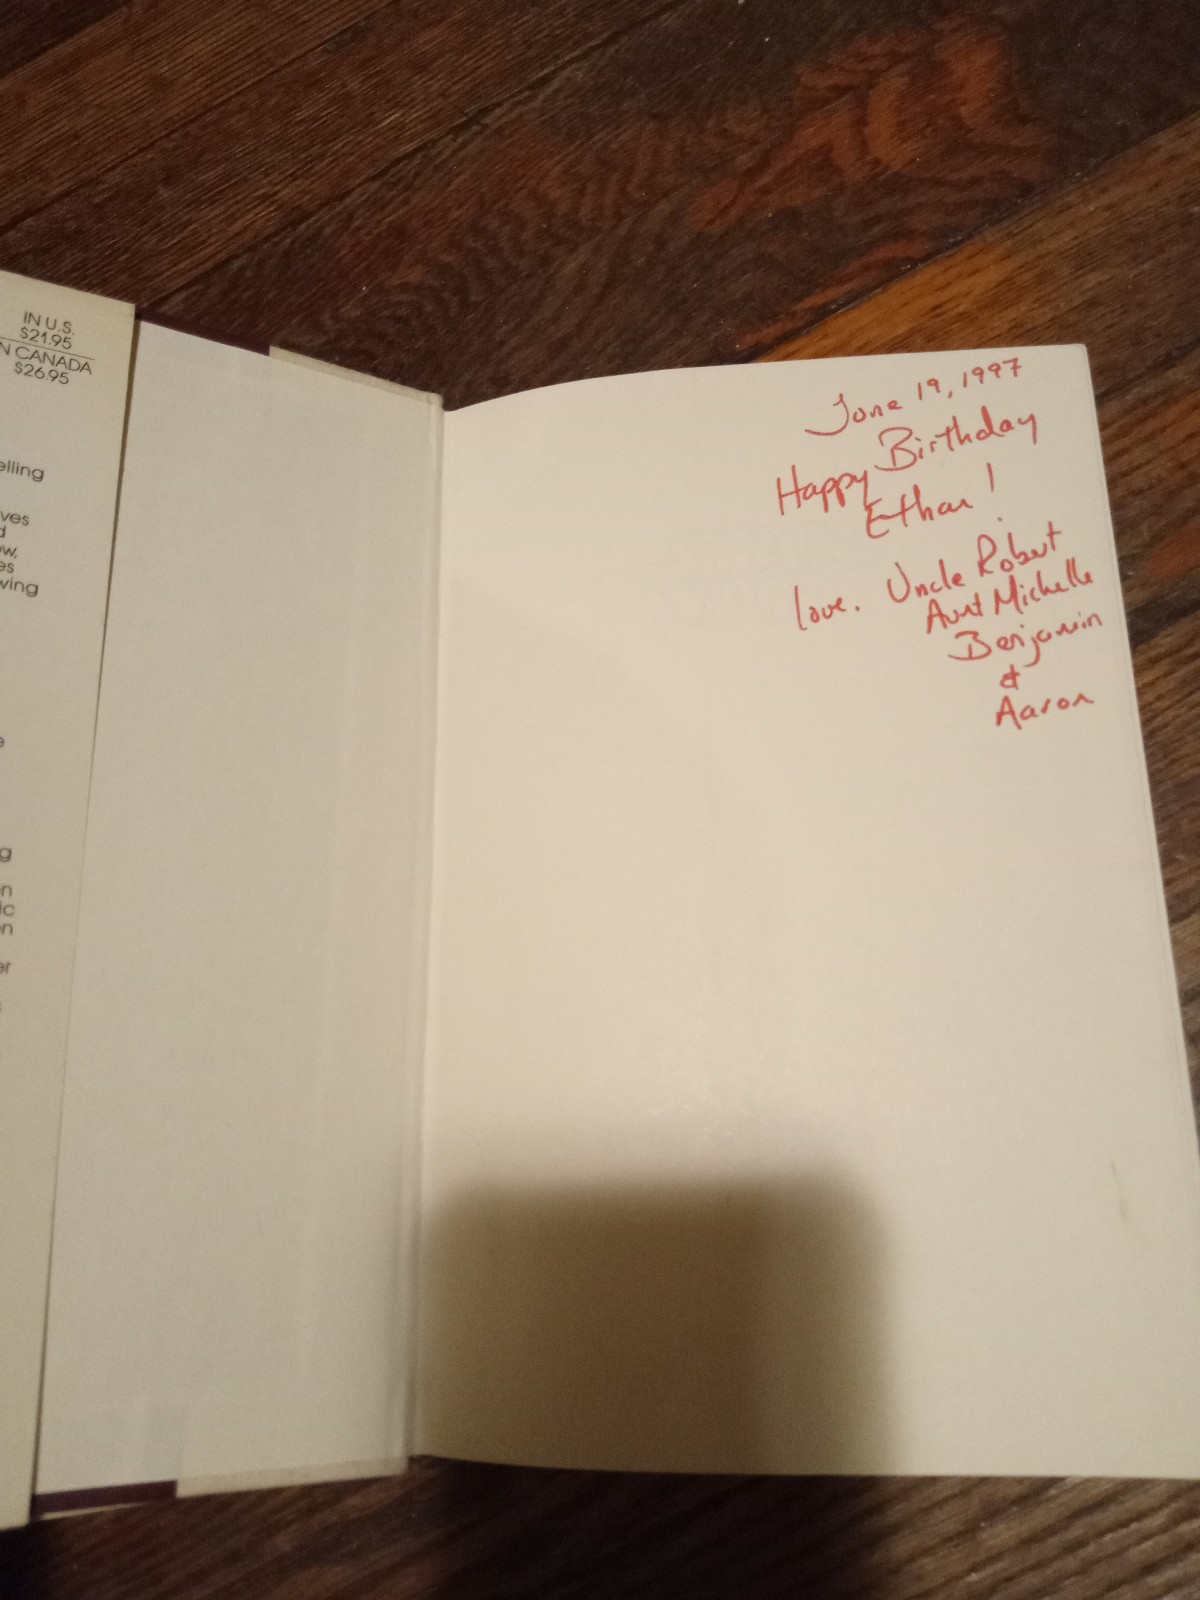 IN U.S.
$21.95
N CANADA
$26.95
elling
ves
d
ow,
es
wing
e
g
n
ic
on
er
June 19, 1997
Happy Birthday
Ethan!
love. Uncle Robert
Aunt Michelle
Benjamin
&
Aaron